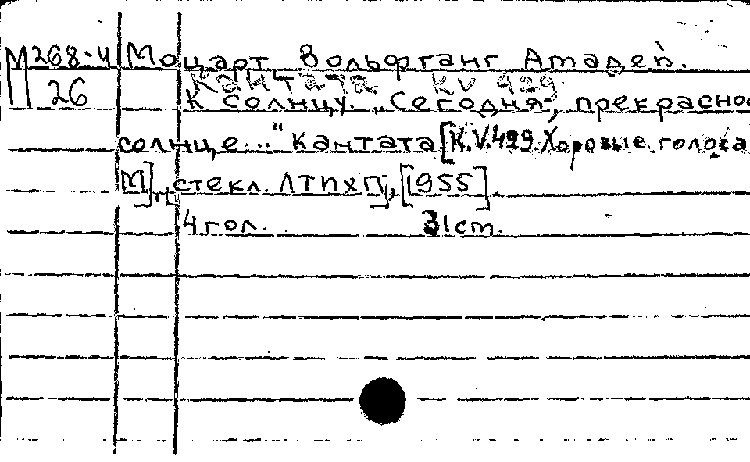 М268-4 Моцарт Вольфганг Амадей.
П26 Кантата KV 429
К солнцу. „Сегодня, прекрасно
солнце..." Кантата [K.V.429. Хоровые голоса
М], [стекл. ЛТПХП], [1955].
4 гол. 31 cm.